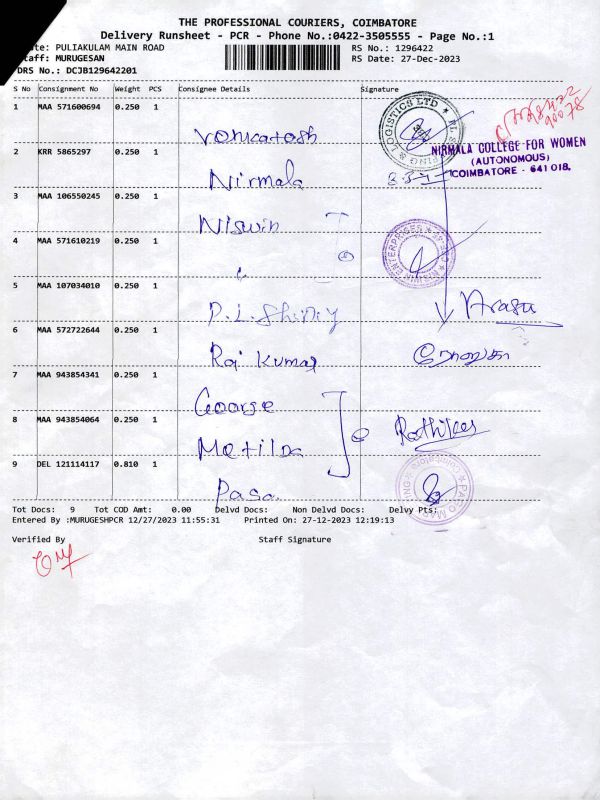 THE PROFESSIONAL COURIERS, COIMBATORE
Delivery Runsheet - PCR - Phone No.:0422-3505555 - Page No.:1
PULIAKULAM MAIN ROAD
RS No.: 1296422
MURUGESAN
RS Date: 27-Dec-2023
DRS No.: DCJB129642201
S No Consignment No Weight PCS Consignee Details Signature
1 MAA 571600694 0.250 1
Venkatesh
LOGISTICS LTD
2 KRR 5865297 0.250 1
Nirmala
NIRMALA COLLEGE FOR WOMEN
(AUTONOMOUS)
COIMBATORE - 641 018.
3 MAA 106550245 0.250 1
Niswin
NISWIN ENTERPRISES
4 MAA 571610219 0.250 1
5 MAA 107034010 0.250 1
P.L. Shiny
Arasu
6 MAA 572722644 0.250 1
Raj Kumar
7 MAA 943854341 0.250 1
George
8 MAA 943854064 0.250 1
Matilda
9 DEL 121114117 0.810 1
Tot Docs: 9 Tot COD Amt: 0.00 Delvd Docs: Non Delvd Docs: Delvy Pts:
Entered By :MURUGESHPCR 12/27/2023 11:55:31 Printed On: 27-12-2023 12:19:13
Verified By Staff Signature